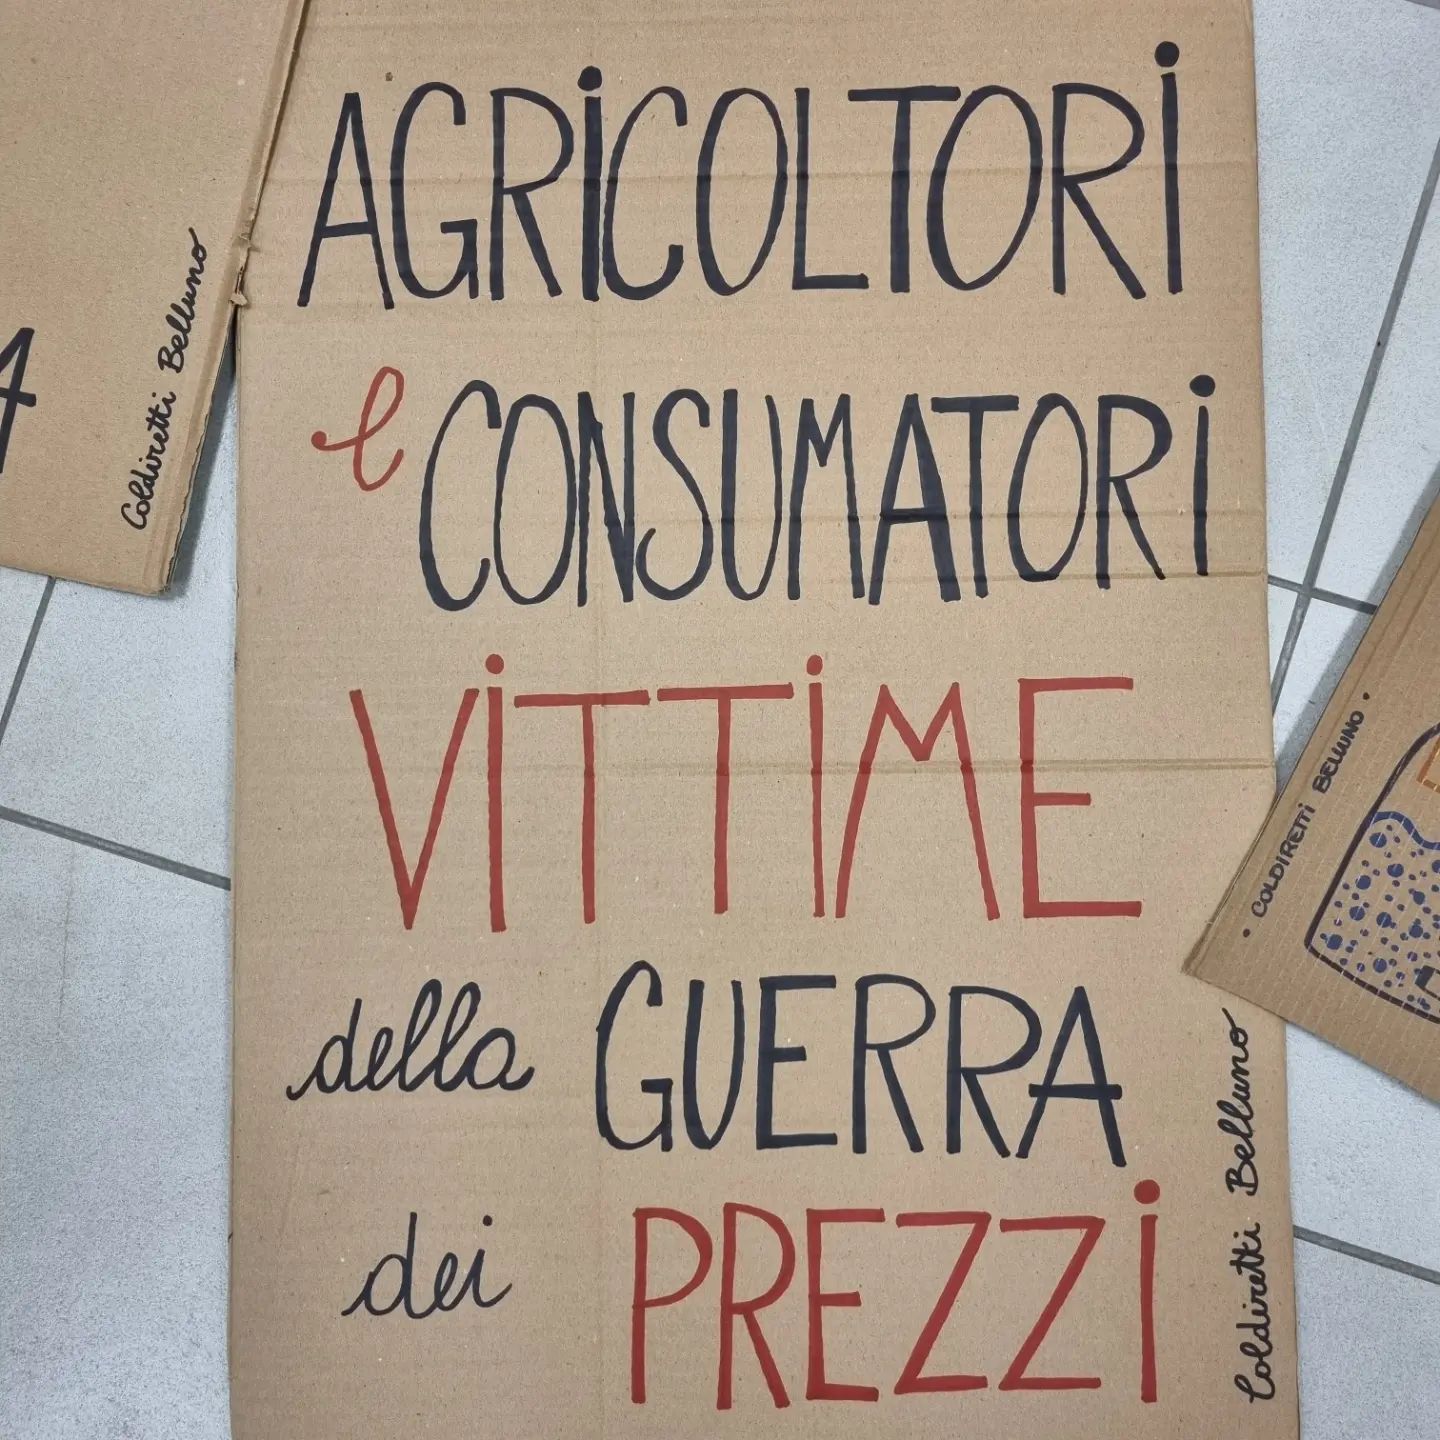 AGRICOLTORI
e CONSUMATORI
VITTIME
della GUERRA
dei PREZZI
Coldiretti Belluno
Coldiretti Belluno
• COLDIRETTI BELLUNO •